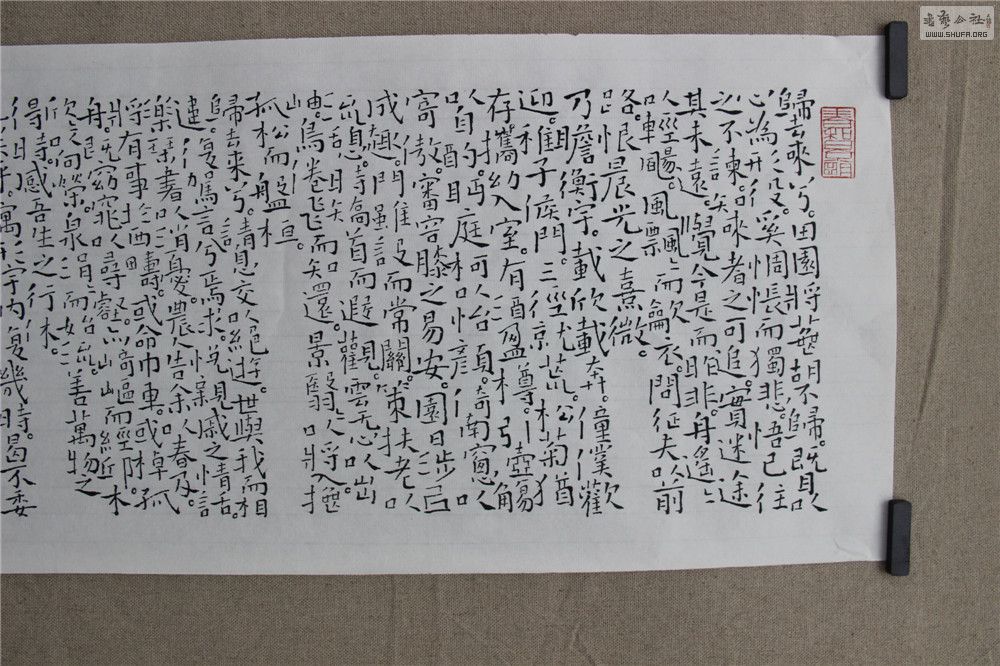 歸去來兮。田園將蕪胡不歸。既自以
心為形役。奚惆悵而獨悲。悟已往
之不諫。知來者之可追。實迷途
其未遠。覺今是而昨非。舟遙遙
以輕颺。風飄飄而吹衣。問征夫以前
路。恨晨光之熹微。
乃瞻衡宇。載欣載奔。僮僕歡
迎。稚子候門。三徑就荒。松菊猶
存。攜幼入室。有酒盈尊。引壺觴
以自酌。眄庭柯以怡顏。倚南窗以
寄傲。審容膝之易安。園日涉以
成趣。門雖設而常關。策扶老以
流憩。時矯首而遐觀。雲無心以出
岫。鳥倦飛而知還。景翳翳以將入。撫
孤松而盤桓。
歸去來兮。請息交以絕遊。世與我而相
違。復駕言兮焉求。悅親戚之情話。
樂琴書以消憂。農人告余以春及。
將有事於西疇。或命巾車。或棹孤
舟。既窈窕以尋壑。亦崎嶇而經丘。木
欣欣以向榮。泉涓涓而始流。善萬物之
得時。感吾生之行休。
寓形宇內復幾時。曷不委
WWW.SHUFA.ORG